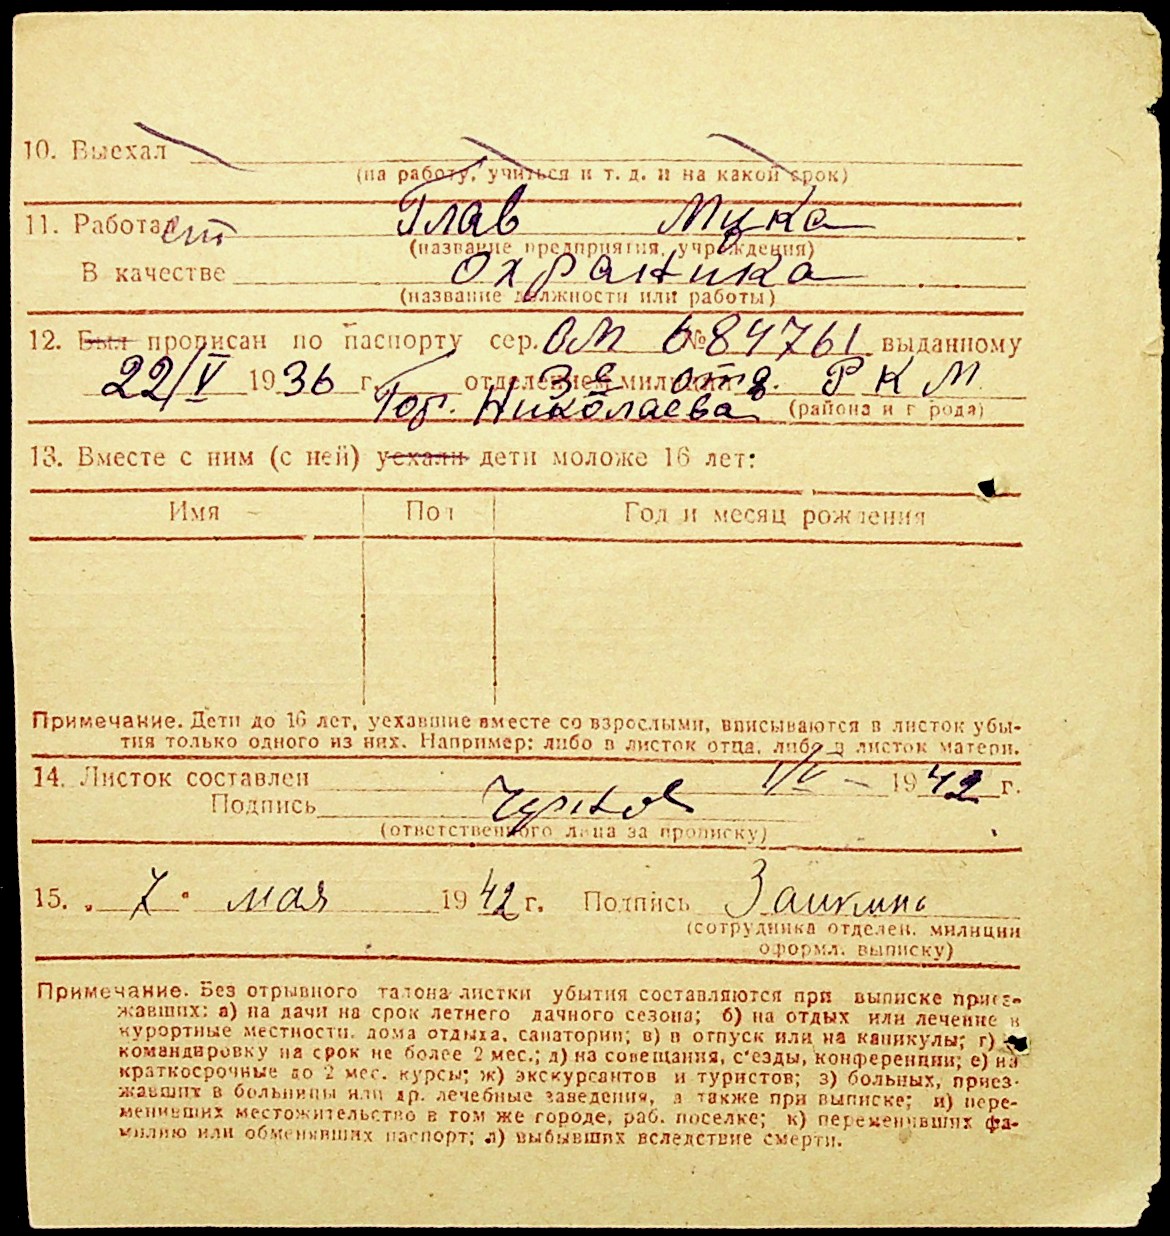 10. Выехал
(на работу, учиться и т. д. и на какой срок)
11. Работает Глав Мука
(название предприятия, учреждения)
В качестве охраника
(название должности или работы)
12. Был прописан по паспорту сер. ОМ № 684761 выданному
22/V 1936 г. отделением милиции 3е отд. Р К М
Гор. Николаева (района и города)
13. Вместе с ним (с ней) уехали дети моложе 16 лет:
Имя Пол Год и месяц рождения
Примечание. Дети до 16 лет, уехавшие вместе со взрослыми, вписываются в листок убы-
тия только одного из них. Например: либо в листок отца, либо в листок матери.
14. Листок составлен 1/V – 1942 г.
Подпись
(ответственного лица за прописку)
15. „ 7 " мая 1942 г. Подпись
(сотрудника отделен. милиции
оформл. выписку)
Примечание. Без отрывного талона листки убытия составляются при выписке приез-
жавших: а) на дачи на срок летнего дачного сезона; б) на отдых или лечение в
курортные местности, дома отдыха, санатории; в) в отпуск или на каникулы; г) в
командировку на срок не более 2 мес.; д) на совещания, с'езды, конференции; е) на
краткосрочные до 2 мес. курсы; ж) экскурсантов и туристов; з) больных, приез-
жавших в больницы или др. лечебные заведения, а также при выписке; и) пере-
менивших местожительство в том же городе, раб. поселке; к) переменивших фа-
милию или обменявших паспорт; л) выбывших вследствие смерти.